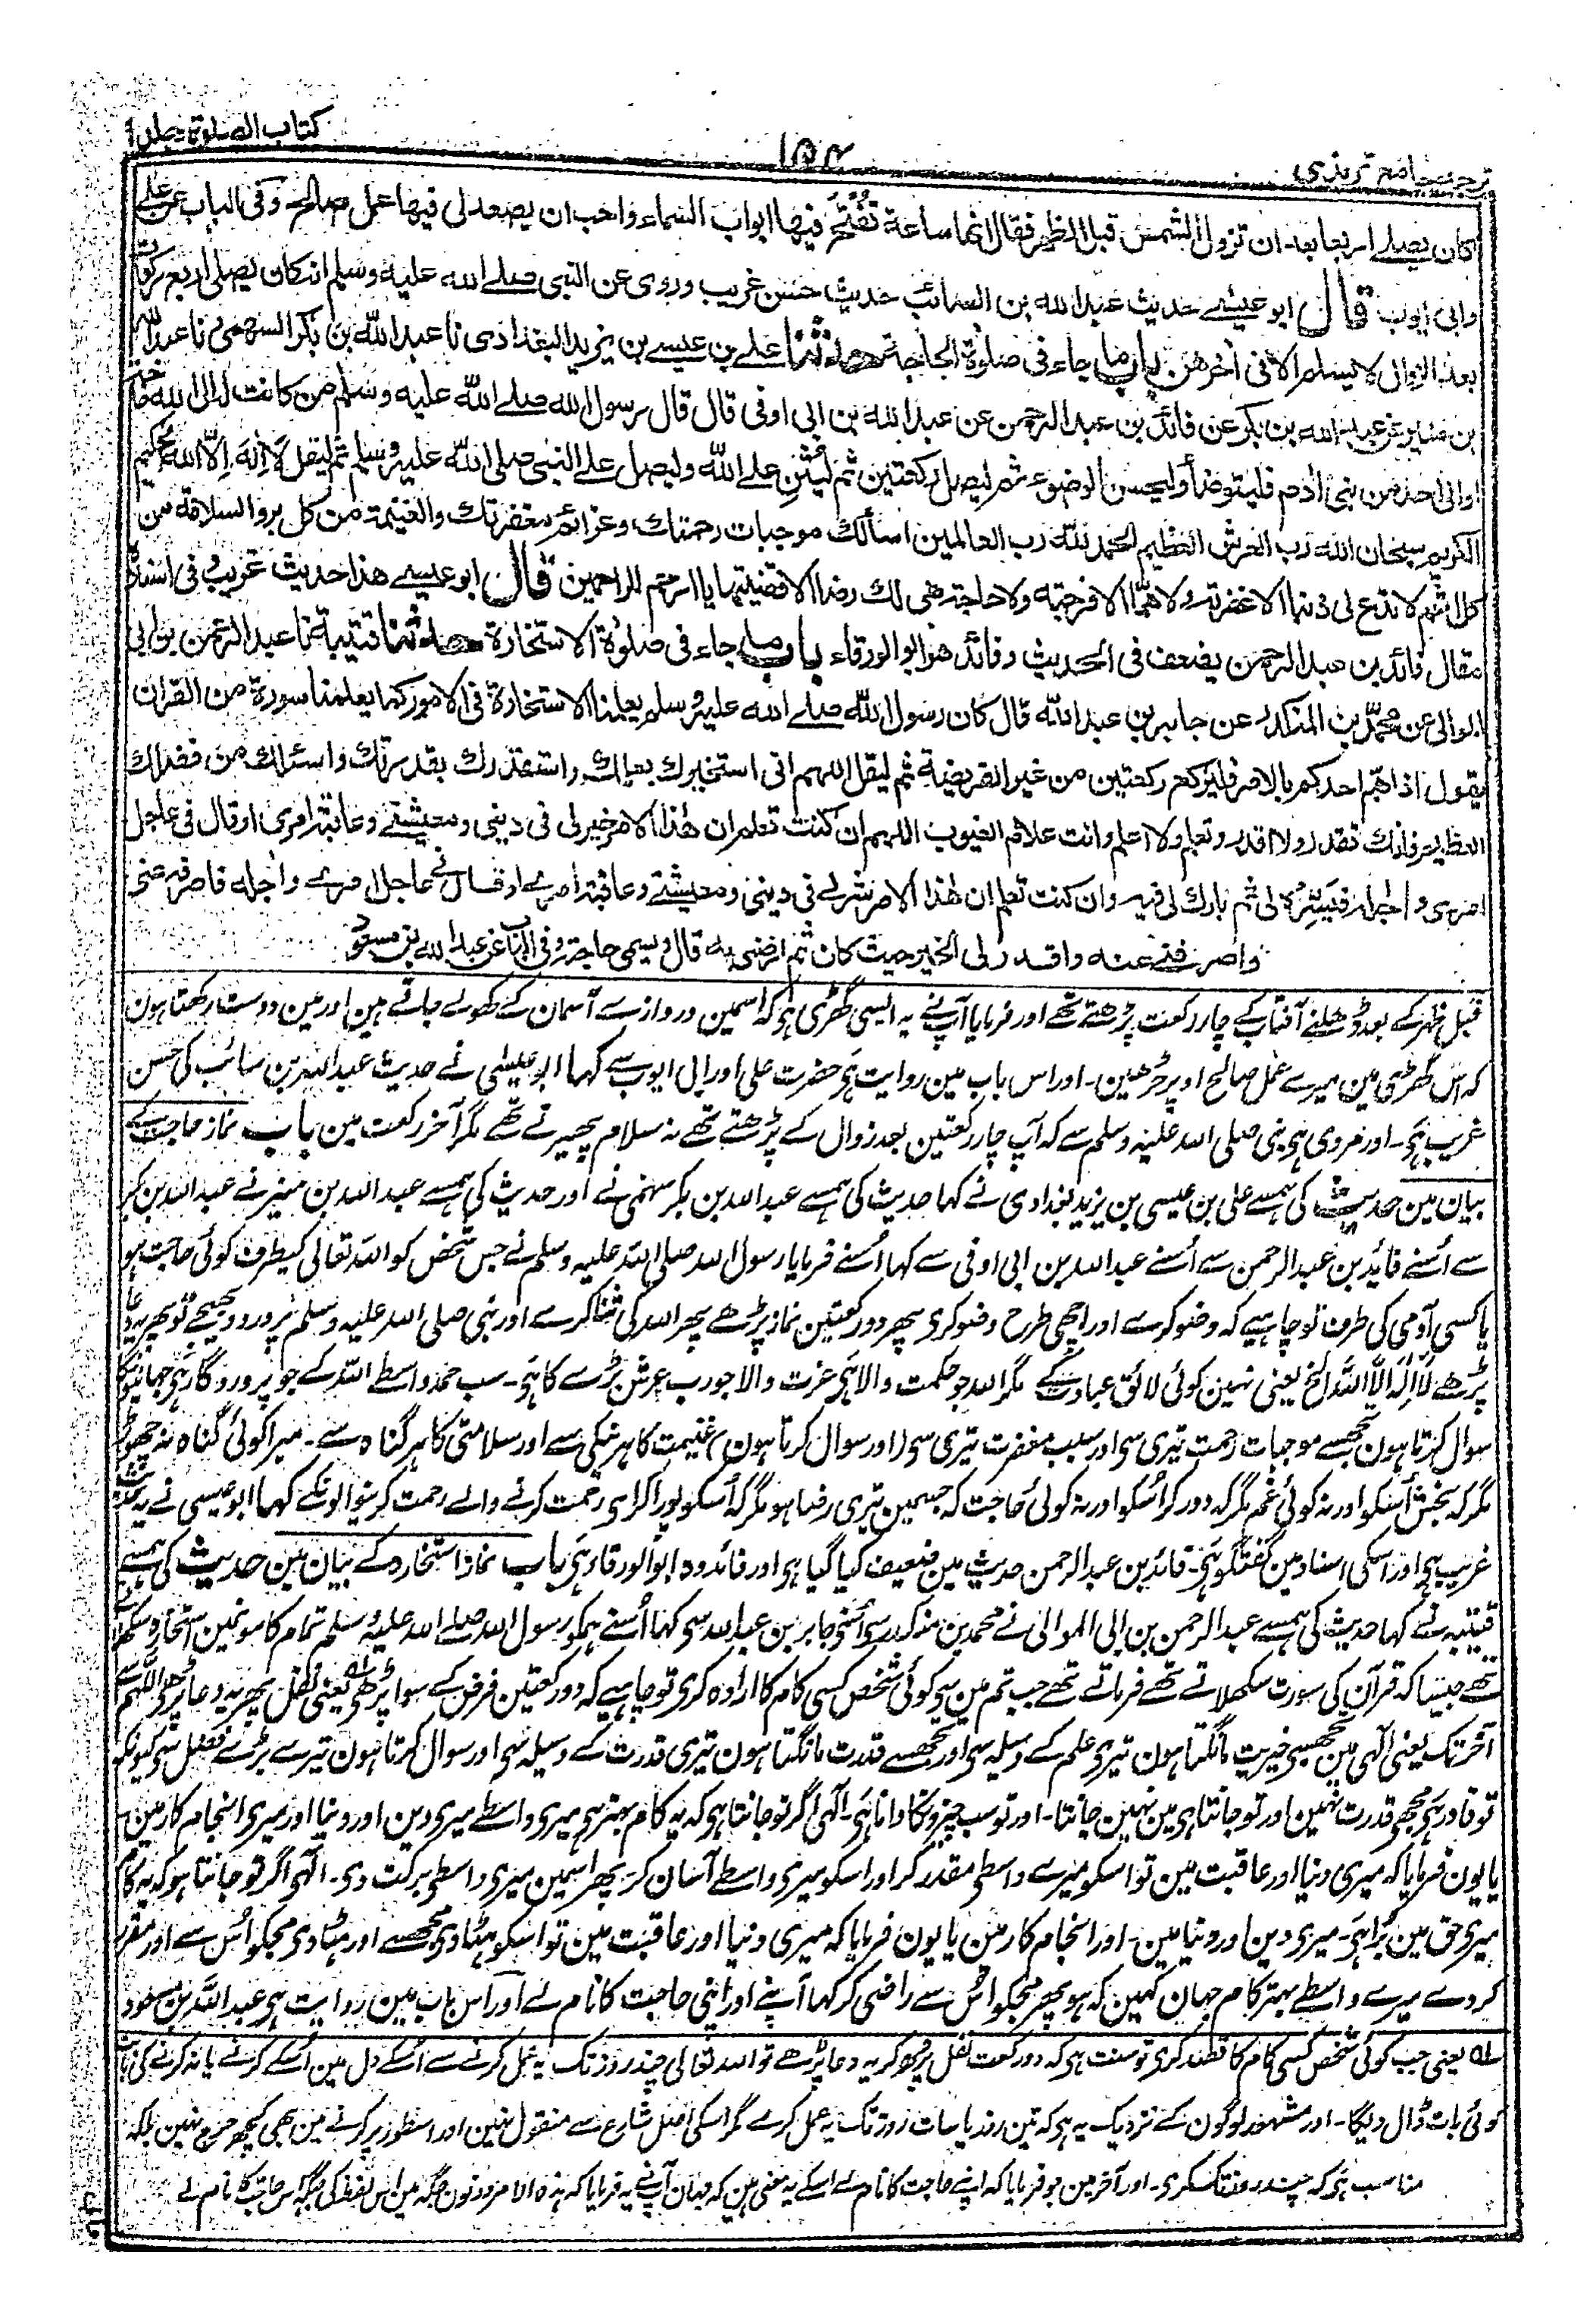 کتاب الصلوۃ جلد ۱
۱۵۴
ترجمہ جامع ترمذی
کان یصلے اربعا بعد ان تزول الشمس قبل الظہر فقال انہا ساعۃ تُفْتَحُ فیہا ابواب السماء واحب ان یصعد لی فیہا عمل صالح وفی الباب عن علے
وابی ایوب قال ابو عیسے حدیث عبد اللہ بن السائب حدیث حسن غریب وروی عن النبی صلے اللہ علیہ وسلم انہ کان یصلی اربع رکعات
بعد الزوال لا یسلم الا فی اٰخرھن باب ما جاء فی صلوٰۃ الحاجۃ حدثنا علے بن عیسے بن یزید البغدادی نا عبد اللہ بن بکر السھمی نا عبد اللہ
بن منیر عن عبد اللہ بن بکر عن فائد بن عبد الرحمن عن عبد اللہ بن ابی اوفی قال قال رسول اللہ صلے اللہ علیہ وسلم من کانت لہ الی اللہ حاجۃ
او الی احد من بنی اٰدم فلیتوضأ ولیحسن الوضوء ثم لیصل رکعتین ثم لیُثْنِ علے اللہ ولیصل علے النبی صلی اللہ علیہ وسلم ثم لیقل لَا اِلٰهَ اِلَّا اللہ الحکیم
الکریم سبحان اللہ رب العرش العظیم الحمد للہ رب العالمین اسألک موجبات رحمتک وعزائم مغفرتک والغنیمۃ من کل بر والسلامۃ من
کل اثم لا تدع لی ذنبا الا غفرتہ ولا ھمّا الا فرجتہ ولا حاجۃ ھی لک رضا الا قضیتہا یا ارحم الراحمین قال ابو عیسے ھذا حدیث غریب وفی اسنادہ
مقال فائد بن عبد الرحمن یضعف فی الحدیث وفائد ھو ابو الورقاء باب ما جاء فی صلوٰۃ الاستخارۃ حدثنا قتیبۃ نا عبد الرحمن بن ابی
الموالی عن محمد بن المنکدر عن جابر بن عبد اللہ قال کان رسول اللہ صلے اللہ علیہ وسلم یعلمنا الاستخارۃ فی الامور کما یعلمنا سورۃ من القراٰن
یقول اذا ھَمّ احدکم بالامر فلیرکع رکعتین من غیر الفریضۃ ثم لیقل اللہم انی استخیرک بعلمک واستقدرک بقدرتک واسئلک من فضلک
العظیم فانک تقدر ولا اقدر وتعلم ولا اعلم وانت علام الغیوب اللہم ان کنت تعلم ان ھٰذا الامر خیر لی فی دینی ومعیشتے وعاقبۃ امری او قال فی عاجل
امری واٰجلہ فیَسِّرْہُ لی ثم بارک لی فیہ وان کنت تعلم ان ھٰذا الامر شر لی فی دینی ومعیشتے وعاقبۃ امرے او قال فی عاجل امرے واٰجلہ فاصرفہ عنی
واصرفنے عنہ واقدر لی الخیر حیث کان ثم ارضنی بہ قال ویسمی حاجتہ وفی الباب عن عبد اللہ بن مسعود
قبل ظہر کے بعد ڈھلنے آفتاب کے چار رکعت پڑھتے تھے اور فرمایا آپ نے یہ ایسی گھڑی ہو کہ اسمین دروازے آسمان کے کھولے جاتے ہین اور مین دوست رکھتا ہون
کہ اس گھڑی مین میرے عمل صالح اوپر چڑھین۔ اور اس باب مین روایت ہَے حضرت علی اور ابی ایوب سے کہا ابو عیسٰی نے حدیث عبد اللہ بن سائب کی حسن
غریب ہَے۔ اور مروی ہو نبی صلی اللہ علیہ وسلم سے کہ آپ چار رکعتین بعد زوال کے پڑھتے تھے نہ سلام پھیرتے تھے مگر آخر رکعت مین باب نماز حاجت کے
بیان مین حدیث کی ہمسے علی بن عیسی بن یزید بغدادی نے کہا حدیث کی ہمسے عبد اللہ بن بکر سہمی نے اور حدیث کی ہمسے عبد اللہ بن منیر نے عبد اللہ بن بکر
سے اُسنے فاید بن عبد الرحمن سے اُسنے عبد اللہ بن ابی اوفی سے کہا اُسنے فرمایا رسول اللہ صلی اللہ علیہ وسلم نے جس شخص کو اللہ تعالی کیطرف کوئی حاجت ہو
یا کسی آدمی کی طرف تو چاہیے کہ وضو کرے اور اچھی طرح وضو کری پھر دو رکعتین نماز پڑھے پھر اللہ کی ثنا کرے اور نبی صلی اللہ علیہ وسلم پر درود بھیجے تو پھر یہ دعا
پڑھے لَا اِلٰهَ اِلَّا اللہ الخ یعنی نہین کوئی لائق عبادت کے مگر اللہ جو حکمت والا ہَے عزت والا جو رب عرش بڑے کا ہَے۔ سب حمد واسطے اللہ کے جو پروردگار ہَے جہانونکا
سوال کرتا ہون تجھسے موجبات رحمت تیری سے اور سبب مغفرت تیری سے (اور سوال کرتا ہون) غنیمت کا ہر نیکی سے اور سلامتی کا ہر گناہ سے۔ میرا کوئی گناہ نہ چھوڑ
مگر کہ بخش اُسکو اور نہ کوئی غم مگر کہ دور کر اُسکو اور نہ کوئی حاجت کہ جسمین تیری رضا ہو مگر کہ اُسکو پورا کر اے رحمت کرنے والے رحمت کرنیوالونکے کہا ابو عیسی نے یہ حدیث
غریب ہَے اور اسکی اسناد مین گفتگو ہَے۔ فائد بن عبد الرحمن حدیث مین ضعیف کیا گیا ہَے اور فائد وہ ابو الورقاء ہَے باب نماز استخارہ کے بیان مین حدیث کی ہمسے
قتیبہ نے کہا حدیث کی ہمسے عبد الرحمن بن ابی الموالی نے محمد بن منکدر سی اُسنی جابر بن عبد اللہ سی کہا اُسنے ہمکو رسول اللہ صلے اللہ علیہ وسلم تمام کامونمین استخارہ سکھلاتے
تھے جیسا کہ قرآن کی سورت سکھلاتے تھے فرماتے تھے جب تم مین سے کوئی شخص کسی کام کا ارادہ کری تو چاہیے کہ دو رکعتین فرض کے سوا پڑھی یعنی نفل پھر یہ دعا پڑھے اللہم سے
آخر تک یعنی آلہی مین تجھسے خیریت مانگتا ہون تیری علم کے وسیلہ سے اور تجھسے قدرت مانگتا ہون تیری قدرت کے وسیلہ سے اور سوال کرتا ہون تیرے بڑے فضل سے کیونکہ
تو قادر ہَے مجھے قدرت نہین اور تو جانتا ہی مین نہین جانتا۔ اور تو سب چیزونکا دانا ہَے۔ آلہی اگر تو جانتا ہَے کہ یہ کام بہتر ہے میری واسطے میری دین اور دنیا اور میری انجام کار مین
یا یون فرمایا کہ میری دنیا اور عاقبت مین تو اسکو میرے واسطی مقدر کر اور اسکو میری واسطے آسان کر پھر اسمین میری واسطی برکت دی۔ آلہی اگر تو جانتا ہو کہ یہ کام
میری حق مین بُرا ہَے۔ میری دین اور دنیا مین۔ اور انجام کار مین یا یون فرمایا کہ میری دنیا اور عاقبت مین تو اسکو ہٹا دی مجھسے اور ہٹا دی مجکو اُس سے اور مقرر
کر دے میرے واسطے بہتر کام جہان کہین کہ ہو پھر مجکو اُس سے راضی کر کہا آپنے اور اپنی حاجت کا نام لے اور اس باب مین روایت ہی عبد اللہ بن مسعود
لہ یعنی جب کوئی شخص کسی کام کا قصد کری تو سنت ہی کہ دو رکعت نفل پڑھ کر یہ دعا پڑھے تو اللہ تعالی چند روز تک یہ عمل کرنے سے اُسکے دل مین اُسکے کرنے یا نہ کرنے کی بابت
کوئی بات ڈال دیگا۔ اور مشہور لوگون کے نزدیک یہ ہی کہ تین روز یا سات روز تک یہ عمل کرے مگر اسکی اصل شارع سے منقول نہین اور اسطور پر کرنے مین بھی کچھ حرج نہین بلکہ
مناسب ہی کہ چند روز تک کری۔ اور آخر مین جو فرمایا کہ اپنے حاجت کا نام لے اسکے یہ معنی ہین کہ جہان آپنے یہ فرمایا کہ ہذہ الامر دونون جگہ مین اس لفظ کی جگہ اس حاجت کا نام لے